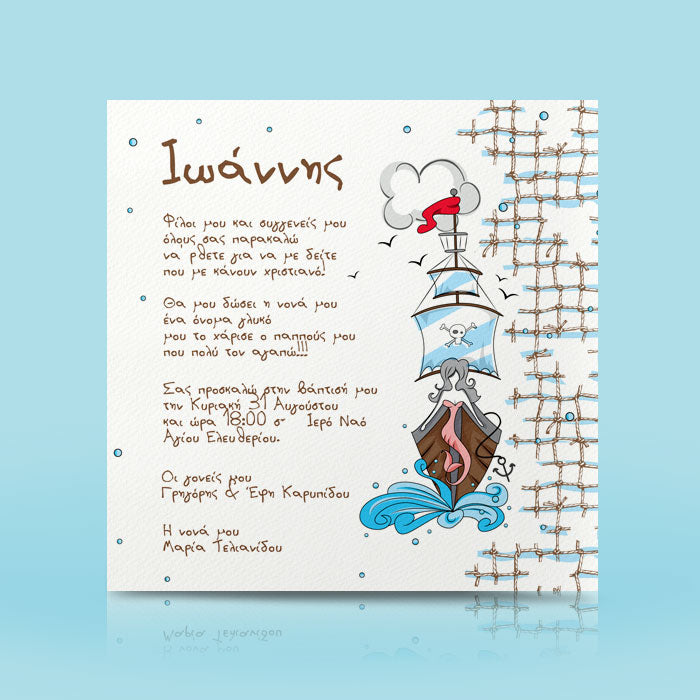 Ιωάννης
Φίλοι μου και συγγενείς μου
όλους σας παρακαλώ
να ρθετε για να με δείτε
που με κάνουν χριστιανό!
Θα μου δώσει η νονά μου
ένα όνομα γλυκό
μου το χάρισε ο παππούς μου
που πολύ τον αγαπώ!!!
Σας προσκαλώ στην βάπτισή μου
την Κυριακή 31 Αυγούστου
και ώρα 18:00 σ Ιερό Ναό
Αγίου Ελευθερίου.
Οι γονείς μου
Γρηγόρης & Έφη Καρυπίδου
Η νονά μου
Μαρία Τελιανίδου